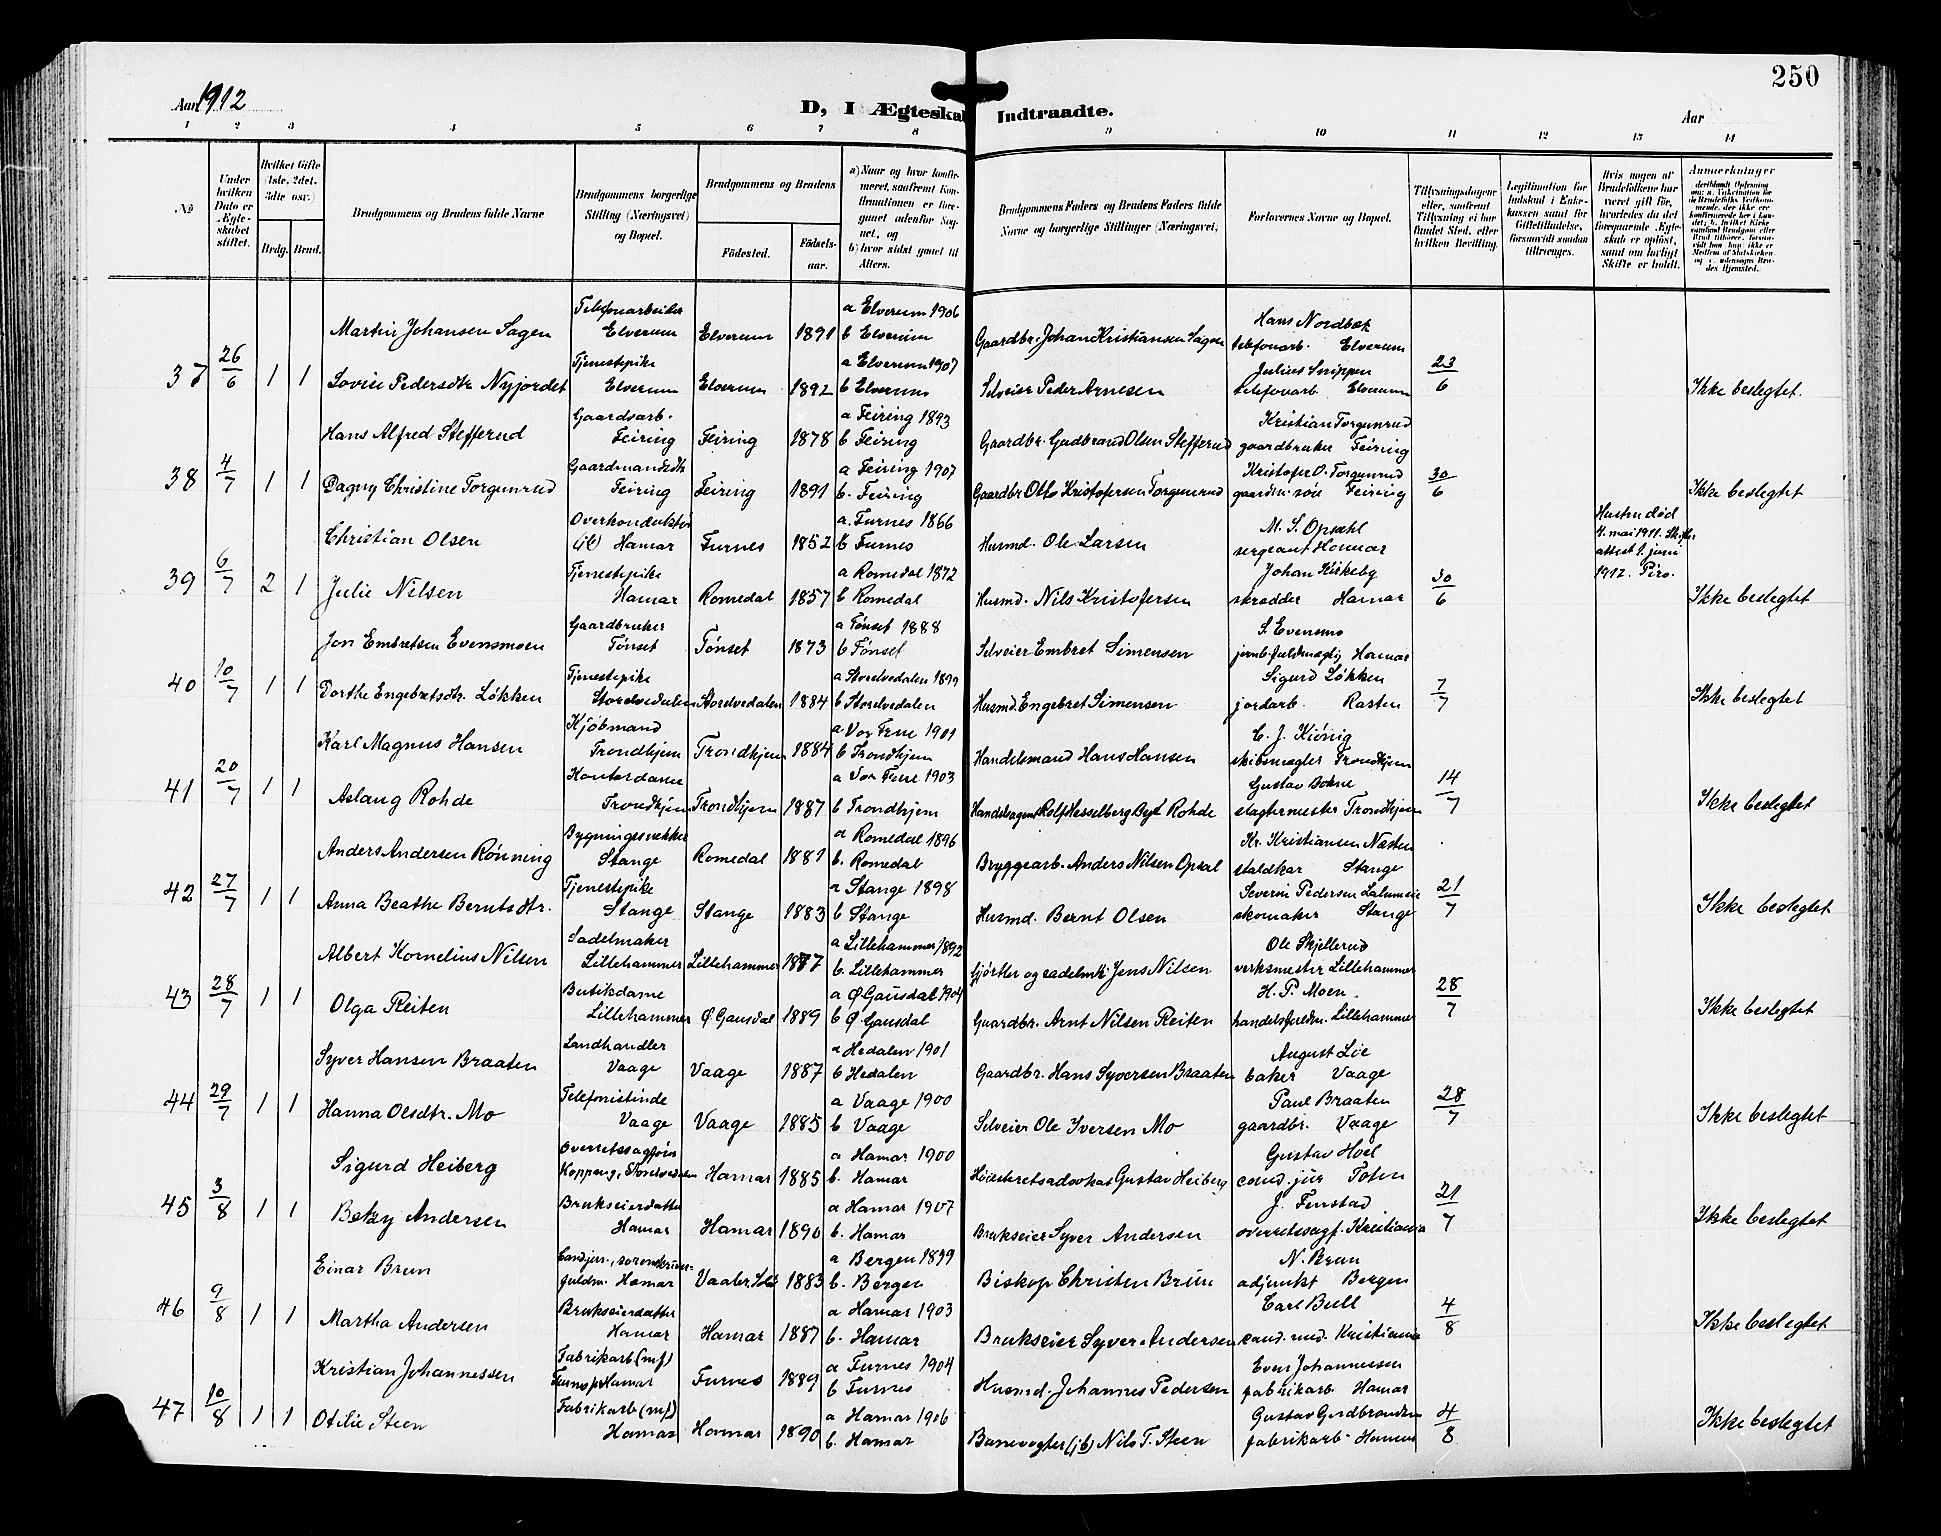 250
Aar 1912
D, I Ægteskab Indtraadte.
Aar
1 2 3 4 5 6 7 8 9 10 11 12 13 14
No
Under hvilken Dato er Ægteskabet stiftet.
Hvilket Gifte (1ste, 2det, 3die osv.)
Brdg. Brud.
Brudgommens og Brudens fulde Navne
Brudgommens borgerlige Stilling (Næringsvei) og Bopæl.
Brudgommens og Brudens
Födested.
Födselsaar.
a) Naar og hvor konfirmeret, saafremt Konfirmationen er foregaaet udenfor Sognet, og
b) hvor sidst gaaet til Alters.
Brudgommens Faders og Brudens Faders fulde Navne og borgerlige Stillinger (Næringsvei)
Forlovernes Navne og Bopæl.
Tillysningsdagene eller, saafremt Tillysning ei har fundet Sted, efter hvilken Bevilling.
Legitimation for Indskud i Enkekassen samt for Giftetilladelse, forsaavidt saadan tiltrænges.
Hvis nogen af Brudefolkene har været gift før, hvorledes da det foregaaende Ægteskab er opløst, samt om lovligt Skifte er holdt.
Anmerkninger
37 26/6 1 1
Martin Johansen Sagen Telefonarbeider Elverum Elverum 1891 a Elverum 1906 b Elverum Gaardbr. Johan Kristiansen Sagen Hans Nordbæk telefonarb. Elverum
Lovise Pedersdtr. Nyjordet Tjenestepike Elverum Elverum 1892 a Elverum 1907 b Elverum Selveier Peder Arnesen Julius Snippen telefonarb. Elverum 23/6 Ikke beslegtet.
38 4/7 1 1
Hans Alfred Stefferud Gaardsarb. Feiring Feiring 1878 a Feiring 1893 b Feiring Gaardbr. Gudbrand Olsen Stefferud Kristian Torgunrud gaardbruker Feiring
Dagny Christine Torgunrud Gaardmandsdtr. Feiring Feiring 1891 a Feiring 1907 b. Feiring Gaardbr. Otto Kristofersen Torgunrud Kristofer O. Torgunrud gaardm. søn Feiring 30/6 Ikke beslegtet
39 6/7 2 1
Christian Olsen Overkonduktør Hamar Furnes 1852 a. Furnes 1866 b Furnes Husmd. Ole Larsen M. S. Opsahl sergeant Hamar Hustru død 4. mai 1911. Skifteattest 1. juni 1912.
Julie Nilsen Tjenestepike Hamar Romedal 1857 a Romedal 1872 b Romedal Husmd. Nils Kristofersen Johan Kirkeby skrædder Hamar 30/6 Ikke beslegtet
40 10/7 1 1
Jon Embretsen Evensmoen Gaardbruker Tønset Tønset 1873 a Tønset 1888 b Tønset Selveier Embret Simensen S. Evensmo jernb.fuldmægtig Hamar
Dorthe Engebretsdtr. Løkken Tjenestepike Storelvedalen Storelvedalen 1884 a Storelvedalen 1899 b Storelvedalen Husmd. Engebret Simensen Sigurd Løkken jordarb. Rasten 7/7 Ikke beslegtet
41 20/7 1 1
Karl Magnus Hansen Kjøbmand Trondhjem Trondhjem 1884 a Vor Frue 1901 b Trondhjem Handelsmand Hans Hansen C. J. Kiønig skibsmægler Trondhjem
Aslaug Rohde Kontordame Trondhjem Trondhjem 1887 a Vor Frue 1903 b Trondhjem Handelsagent Rolf Hesselberg Byt Rohde Gustav Bokne slagtermester Trondhjem 14/7 Ikke beslegtet
42 27/7 1 1
Anders Andersen Rønning Bygningssnekker Stange Romedal 1881 a Romedal 1896 b. Romedal Bryggearb. Anders Nilsen Opsal Kr. Kristiansen Næsten staldkar Stange
Anna Beathe Berntsdtr. Tjenestepike Stange Stange 1883 a Stange 1898 b Stange Husmd. Bernt Olsen Severin Pedersen skomaker Stange 21/7 Ikke beslegtet
43 28/7 1 1
Albert Kornelius Nilsen Sadelmaker Lillehammer Lillehammer 1877 a Lillehammer 1892 b. Lillehammer Gjørtler og sadelmk. Jens Nilsen Ole Skjellerud verksmester Lillehammer
Olga Reiten Butikdame Lillehammer Ø Gausdal 1889 a Ø Gausdal 1904 b Ø Gausdal Gaardbr. Arnt Nilsen Reiten H. P. Moen handelsfuldm. Lillehammer 28/7 Ikke beslegtet
44 29/7 1 1
Syver Hansen Braaten Landhandler Vaage Vaage 1887 a Hedalen 1901 b Hedalen Gaardbr. Hans Syversen Braaten August Lie baker Vaage
Hanna Olsdtr. Mo Telefonistinde Vaage Vaage 1885 a Vaage 1900 b Vaage Selveier Ole Iversen Mo Paul Braaten gaardbr. Vaage 28/7 Ikke beslegtet
45 3/8 1 1
Sigurd Heiberg Overretssagfører Koppang, Storelvedalen Hamar 1885 a Hamar 1900 b. Hamar Høiesteretsadvokat Gustav Heiberg Gustav Hoel cand. jur Toten
Betzy Andersen Brukseierdatter Hamar Hamar 1890 a Hamar 1907 b. Hamar Brukseier Syver Andersen J. Finstad overretssagf. Kristiania 21/7 Ikke beslegtet
46 9/8 1 1
Einar Brun Cand.jur., sorenskriverfuldm. Hamar Vaaler, Sol. 1883 a Bergen 1899 b. Bergen Biskop Christen Brun N. Brun adjunkt Bergen
Martha Andersen Brukseierdatter Hamar Hamar 1887 a Hamar 1903 b. Hamar Brukseier Syver Andersen Carl Bull cand. med. Kristiania 4/8 Ikke beslegtet
47 10/8 1 1
Kristian Johannessen Fabrikarb (mf) Furnes p Hamar Furnes 1889 a Furnes 1904 b Furnes Husmd. Johannes Pedersen Even Johannessen fabrikarb Hamar
Otilie Steen Fabrikarb (mf) Hamar Hamar 1890 a Hamar 1906 b. Hamar Banevogter (jb) Nils T. Steen Gustav Gudbrandsen fabrikarb. Hamar 4/8 Ikke beslegtet